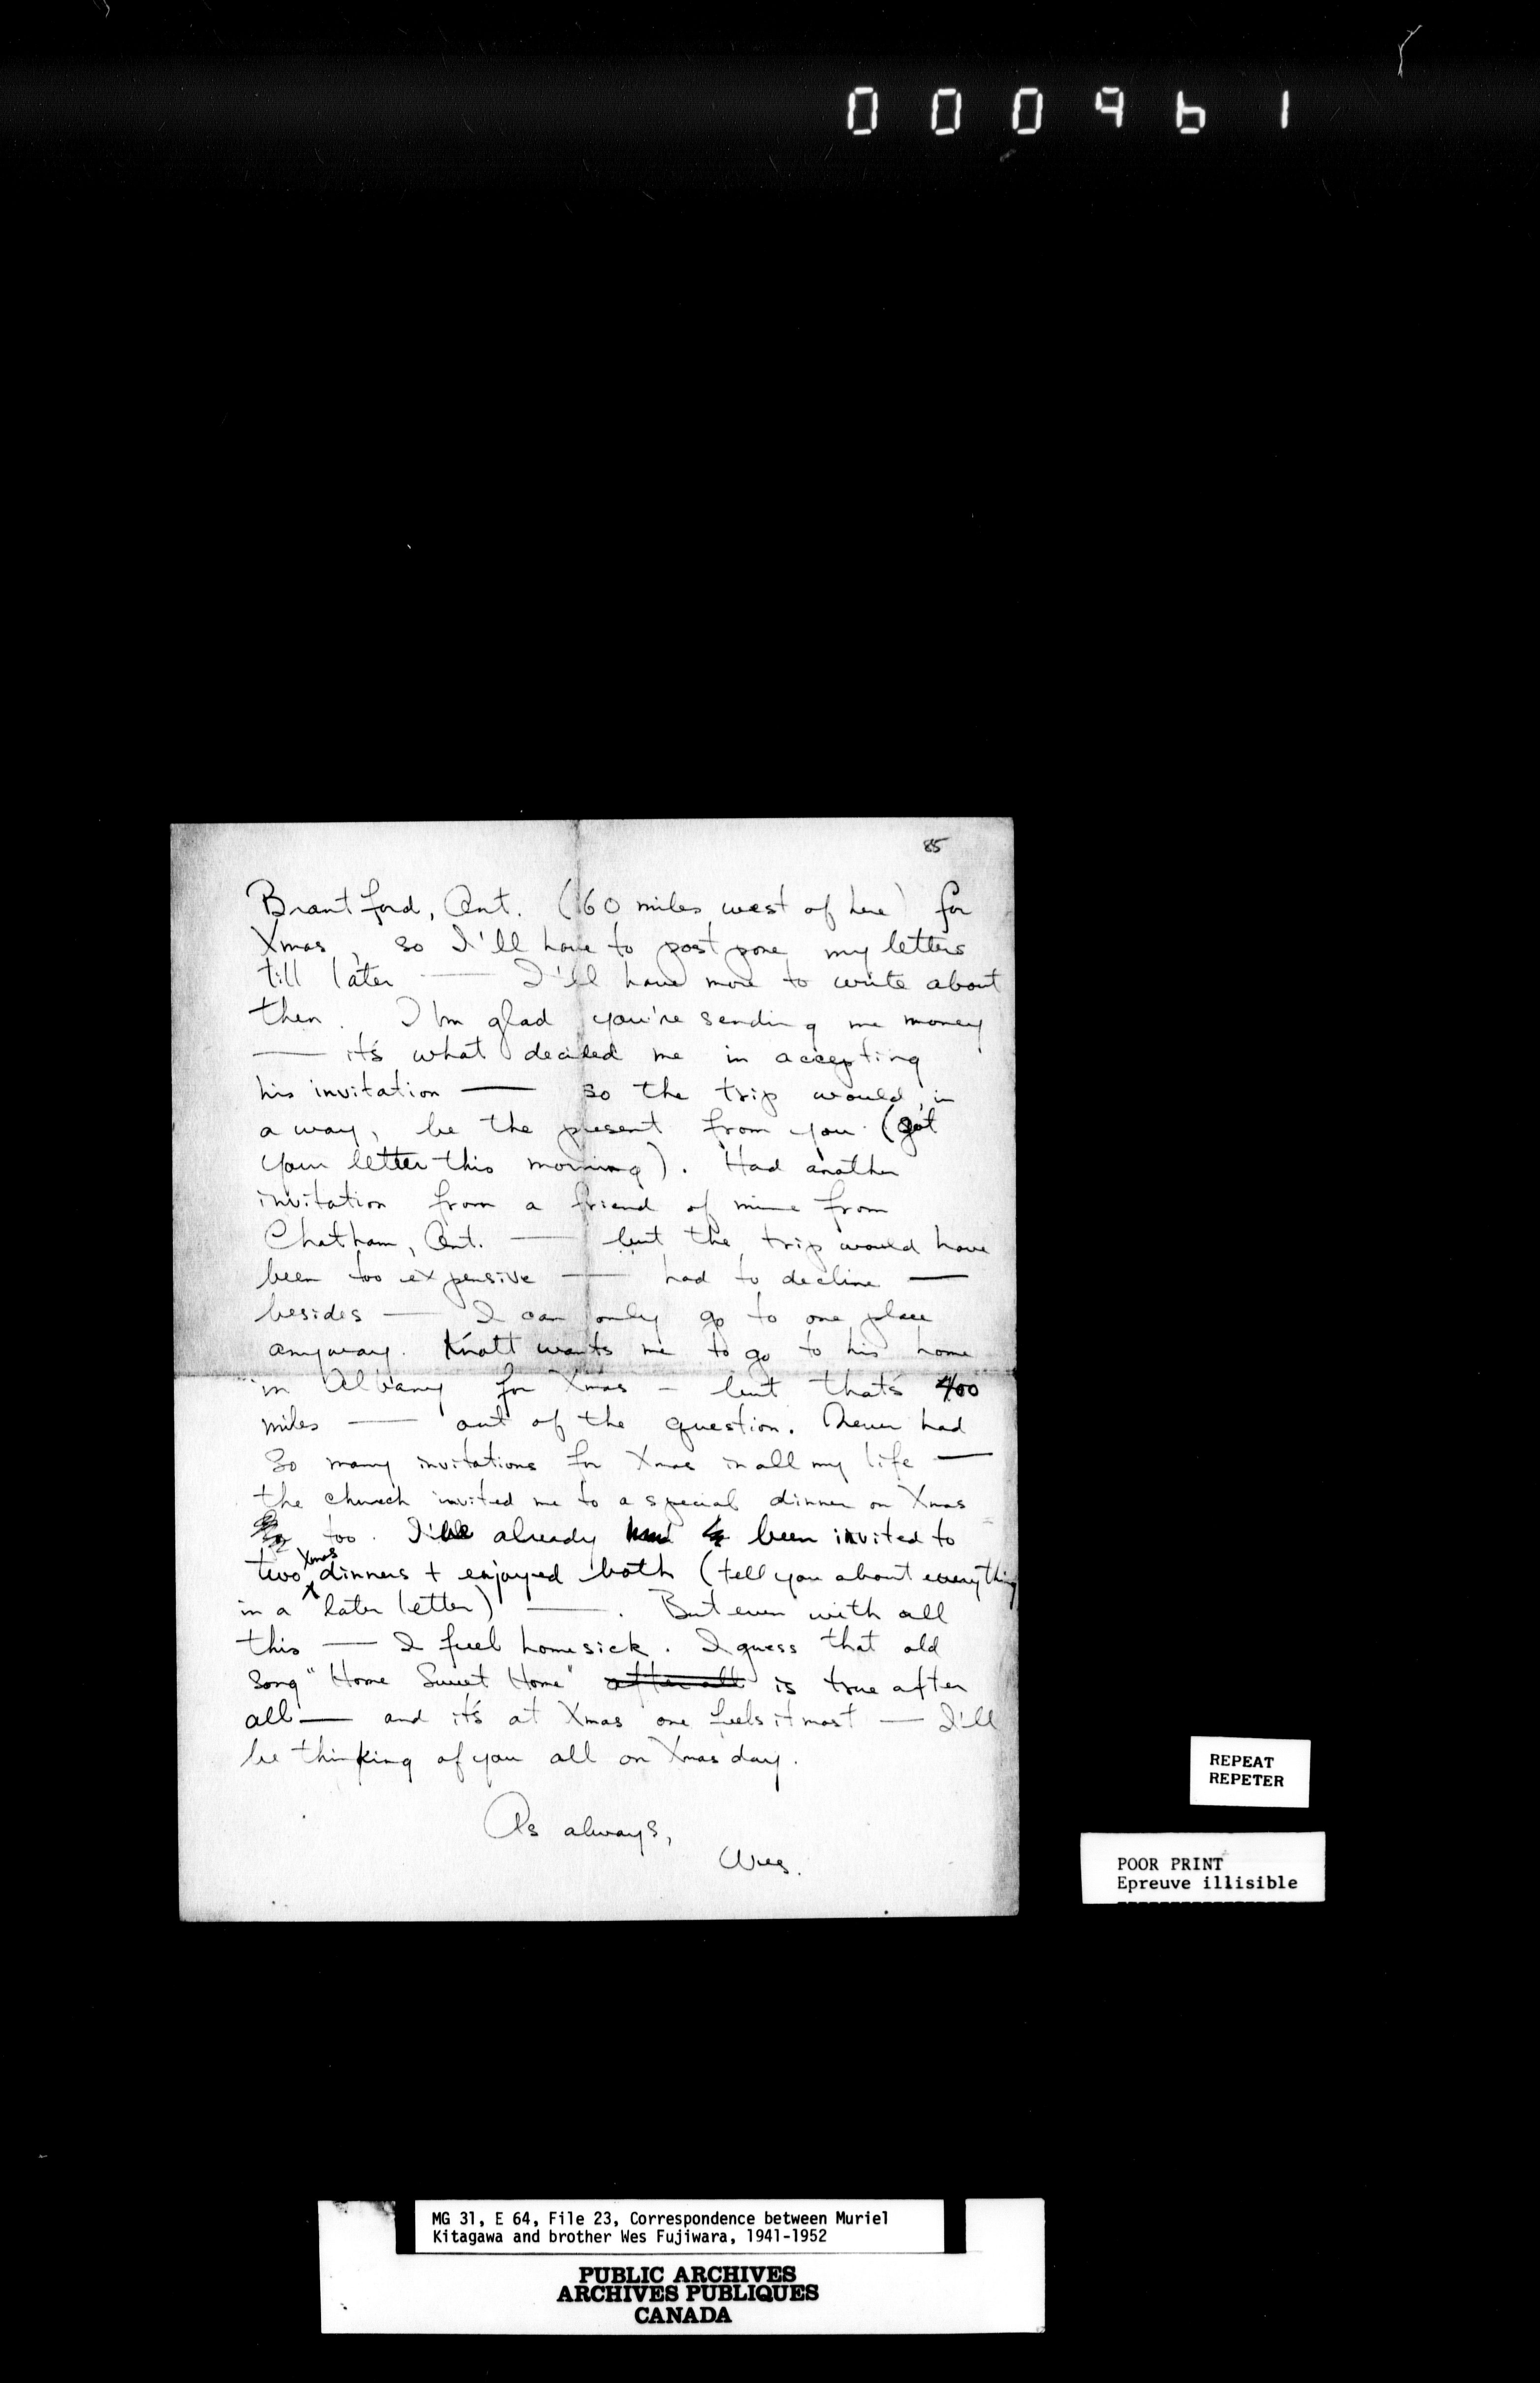 000961
85
Brantford, Ont. (60 miles west of here) for
Xmas, so I'll have to postpone my letters
till later — I'll have more to write about
then. I'm glad you're sending me money
— it's what decided me in accepting
his invitation — so the trip would, in
a way, be the present from you (got
your letter this morning). Had another
invitation from a friend of mine from
Chatham, Ont. — but the trip would have
been too expensive — had to decline —
besides — I can only go to one place
anyway. Knott wants me to go to his home
in Albany for Xmas - but that's 400
miles — out of the question. Never had
so many invitations for Xmas in all my life —
the church invited me to a special dinner on Xmas
too. I've already been invited to
two Xmas dinners + enjoyed both (tell you about everything
in a later letter) —. But even with all
this — I feel homesick. I guess that old
song "Home Sweet Home" after all is true after
all — and it's at Xmas one feels it most — I'll
be thinking of you all on Xmas day.
As always,
Wes.
REPEAT
REPETER
POOR PRINT
Epreuve illisible
MG 31, E 64, File 23, Correspondence between Muriel
Kitagawa and brother Wes Fujiwara, 1941-1952
PUBLIC ARCHIVES
ARCHIVES PUBLIQUES
CANADA